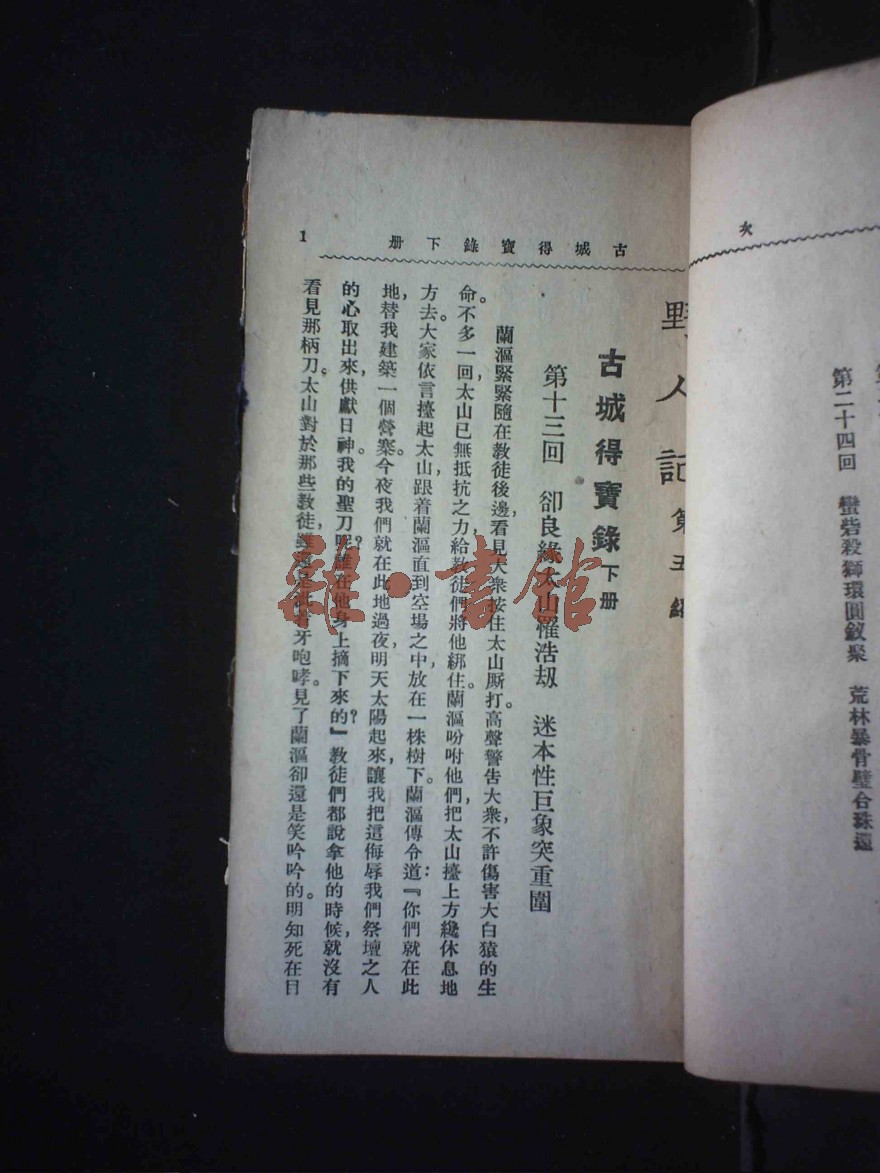 次
第二十四回　蠻砦殺獅環圓釵聚　荒林暴骨璧合珠還
古城得寶錄下册
1
野人記第五編
古城得寶錄下册
第十三回　卻良緣太山罹浩刼　迷本性巨象突重圍
蘭漚緊緊隨在教徒後邊，看見大衆按住太山厮打。高聲警告大衆，不許傷害大白猿的生
命。不多一回，太山已無抵抗之力，給教徒們將他綁住。蘭漚吩咐他們，把太山擡上方纔休息地
方去。大家依言擡起太山，跟着蘭漚直到空場之中，放在一株樹下。蘭漚傳令道：『你們就在此
地，替我建築一個營寨。今夜我們就在此地過夜，明天太陽起來，讓我把這侮辱我們祭壇之人
的心取出來，供獻日神。我的聖刀呢？誰在他身上摘下來的？』教徒們都說拿他的時候，就沒有
看見那柄刀。太山對於那些教徒，雖還是齜着牙咆哮。見了蘭漚卻還是笑吟吟的。明知死在目
雜·書館